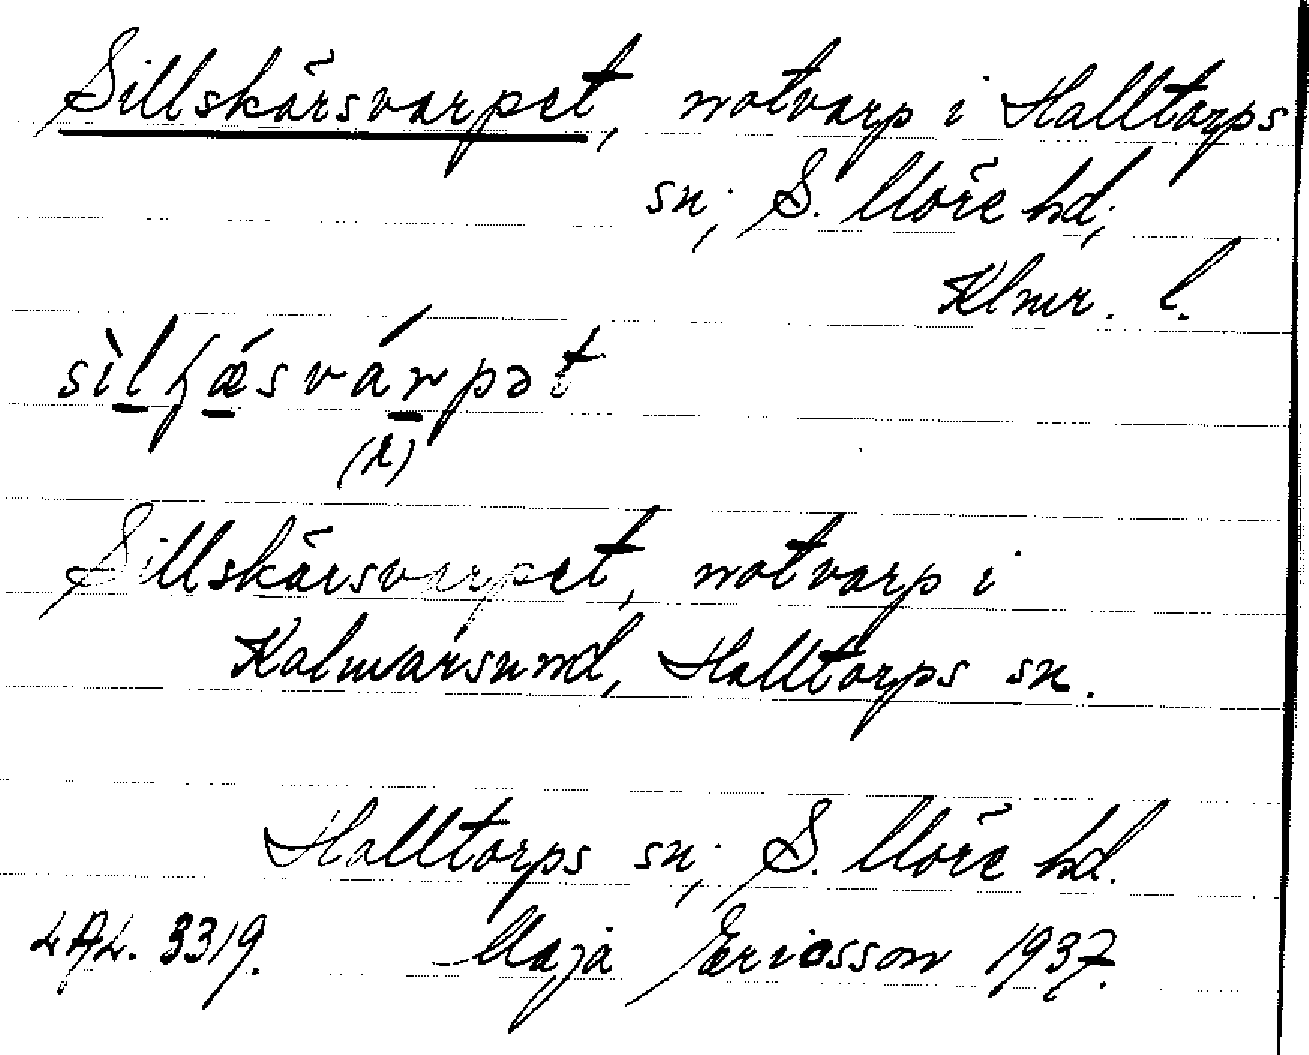 Sillskärsvarpet, notvarp i Halltorps
sn; S. Möre hd;
Klmr. l.
sìlʃǽsvárpət
(ʀ)
Sillskärsvarpet, notvarp i
Kalmarsund, Halltorps sn.
Halltorps sn; S. Möre hd.
LAL. 3319. Maja Ericsson 1937.